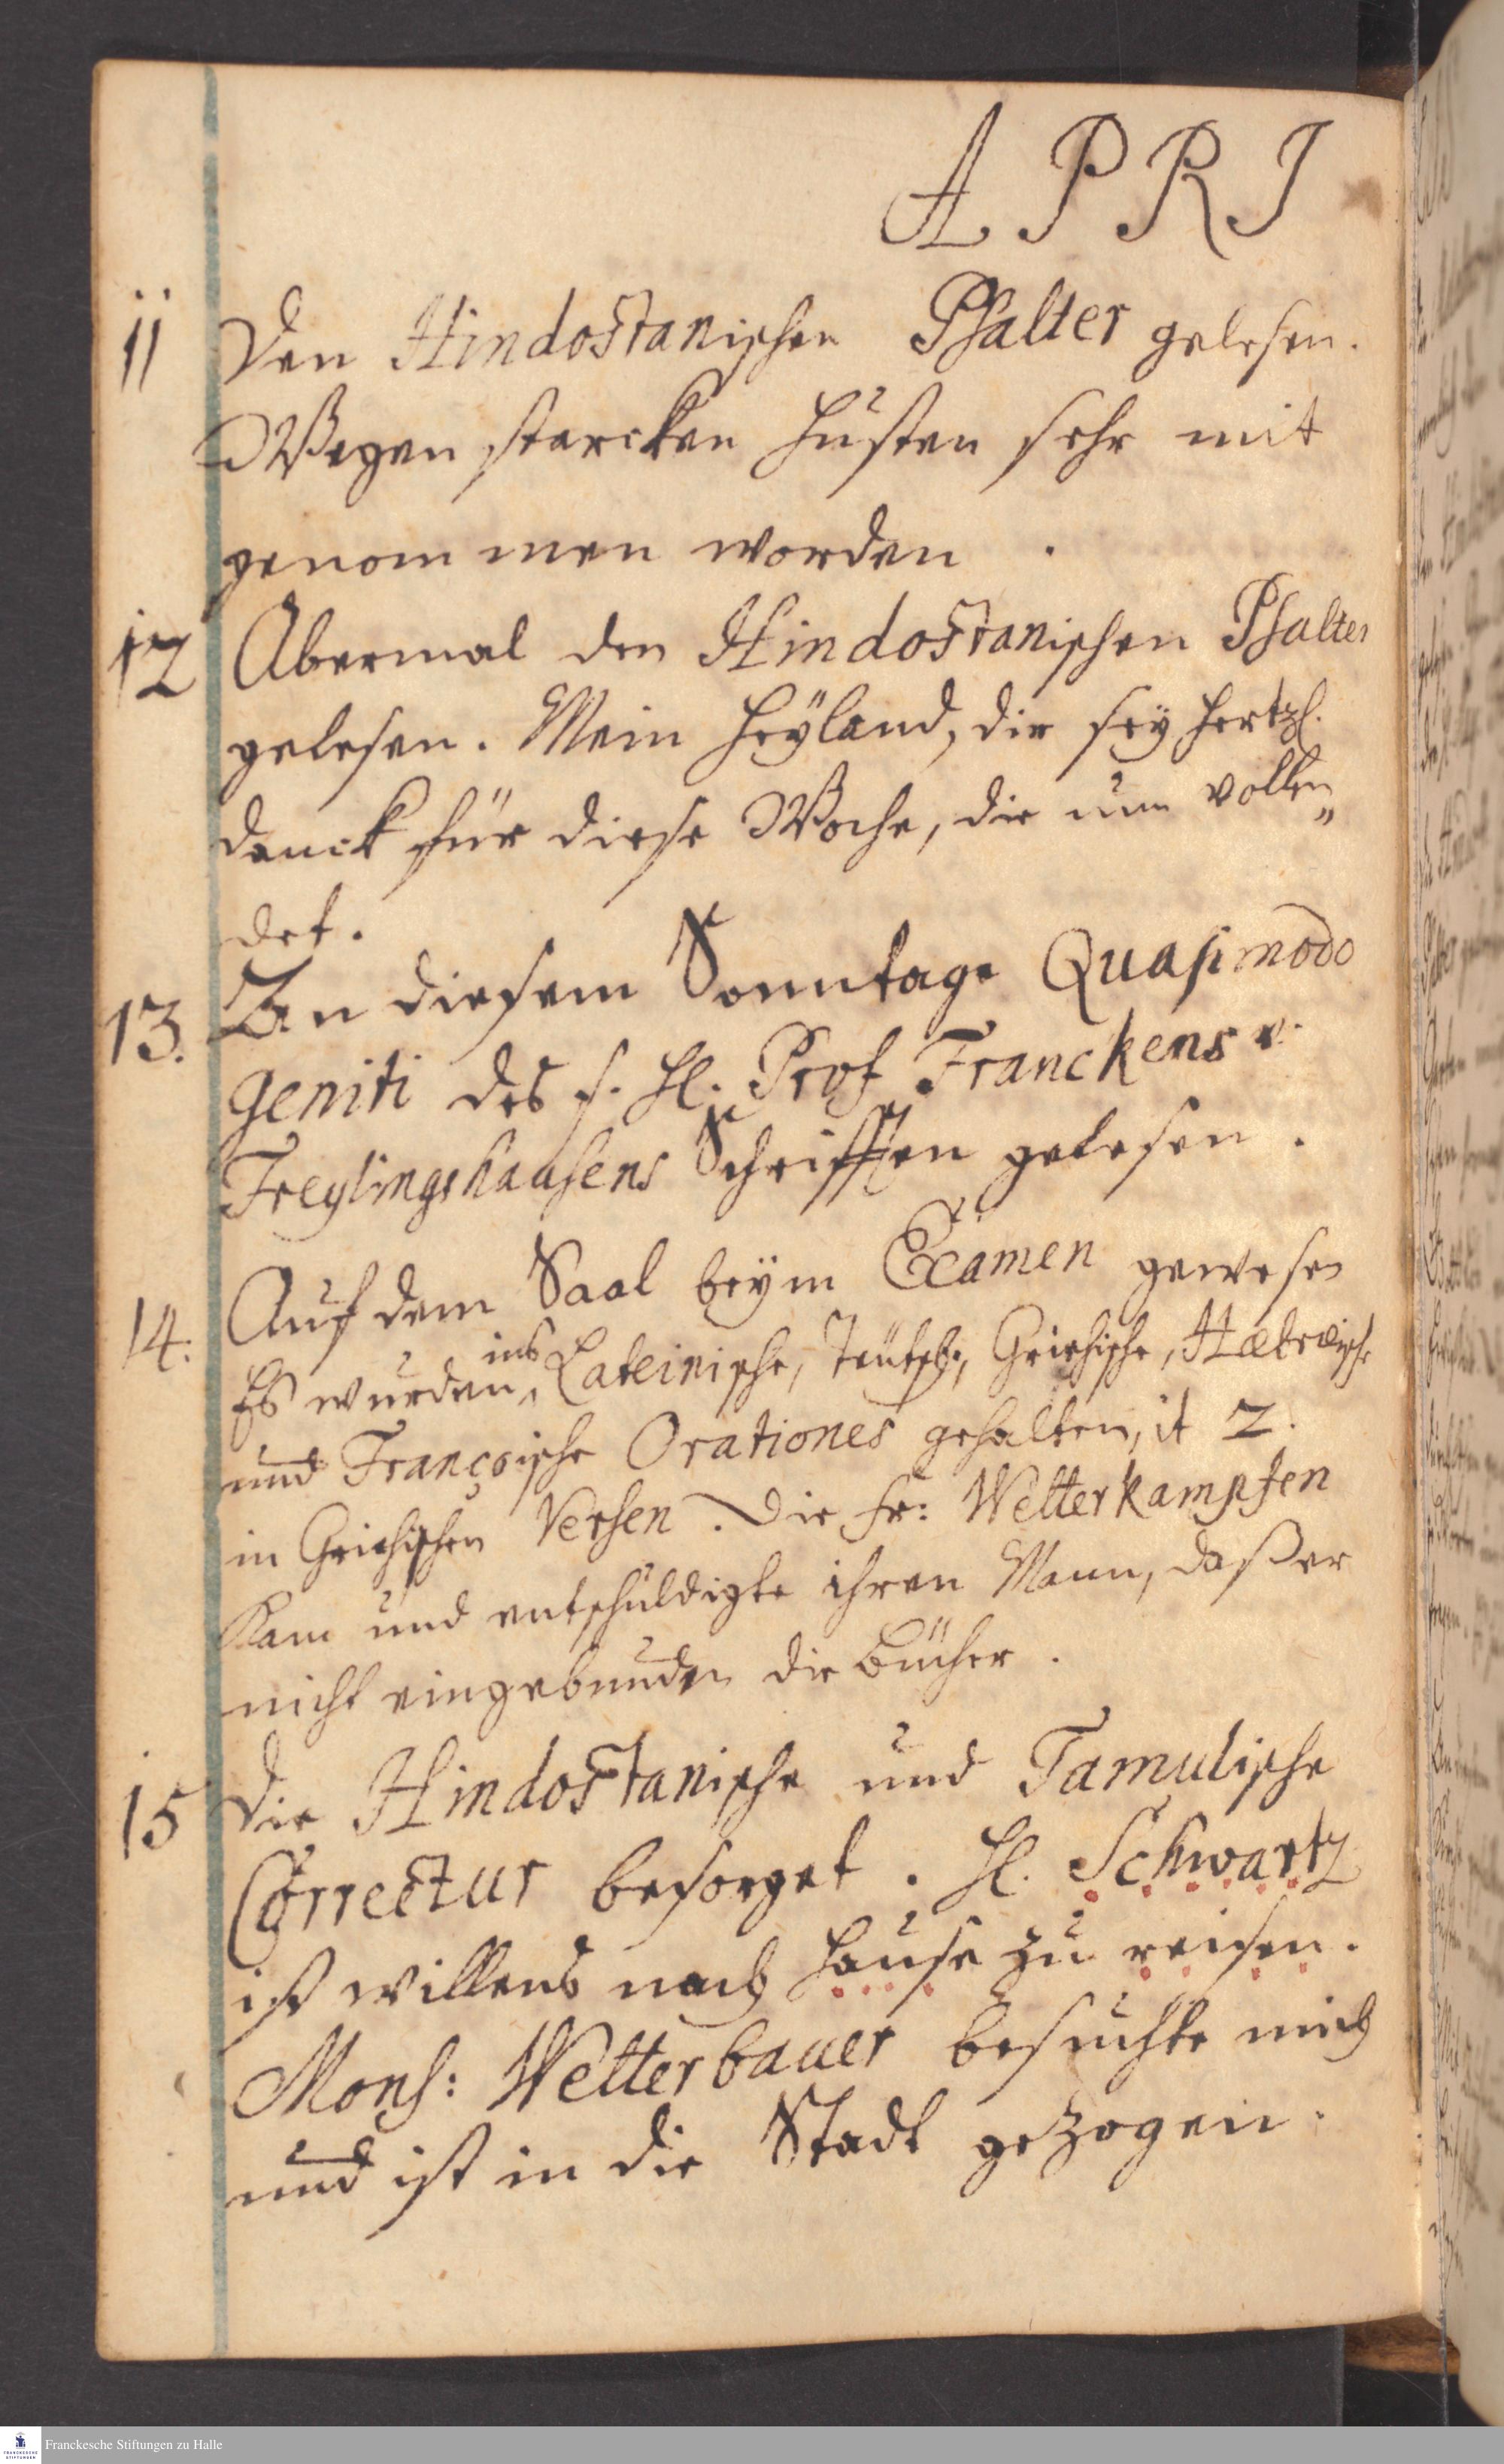 APRI
11 Den Hindostanischen Psalter gelesen.
Wegen starcken Husten sehr mit
genommen worden.
12 Abermal den Hindostanischen Psalter
gelesen. Mein Heyland, dir sey hertzl.
danck für diese Woche, die nun vollen„
det.
13. An diesem Sonntage Quasimodo
geniti des s. H. Prof Franckens u.
Freylingshausens Schrifften gelesen.
14. Auf dem Saal beym Examen gewesen
Es wurden, Lateinische, Teutsch., Griechische, Hebræische
und Françoische Orationes gehalten, it 2.
in Griechischen Versen. Die Fr: Wetterkampfen
kam und entschuldigte ihren Mann, daß er
nicht eingebunden die Bücher.
15 Die Hindostanische und Tamulische
Correctur besorget. H. Schwartz
ist willens nach Hause zu reisen.
Mons: Wetterbauer besuchte mich
und ist in die Stadt gezogen.
FRANCKESCHE STIFTUNGEN
Franckesche Stiftungen zu Halle